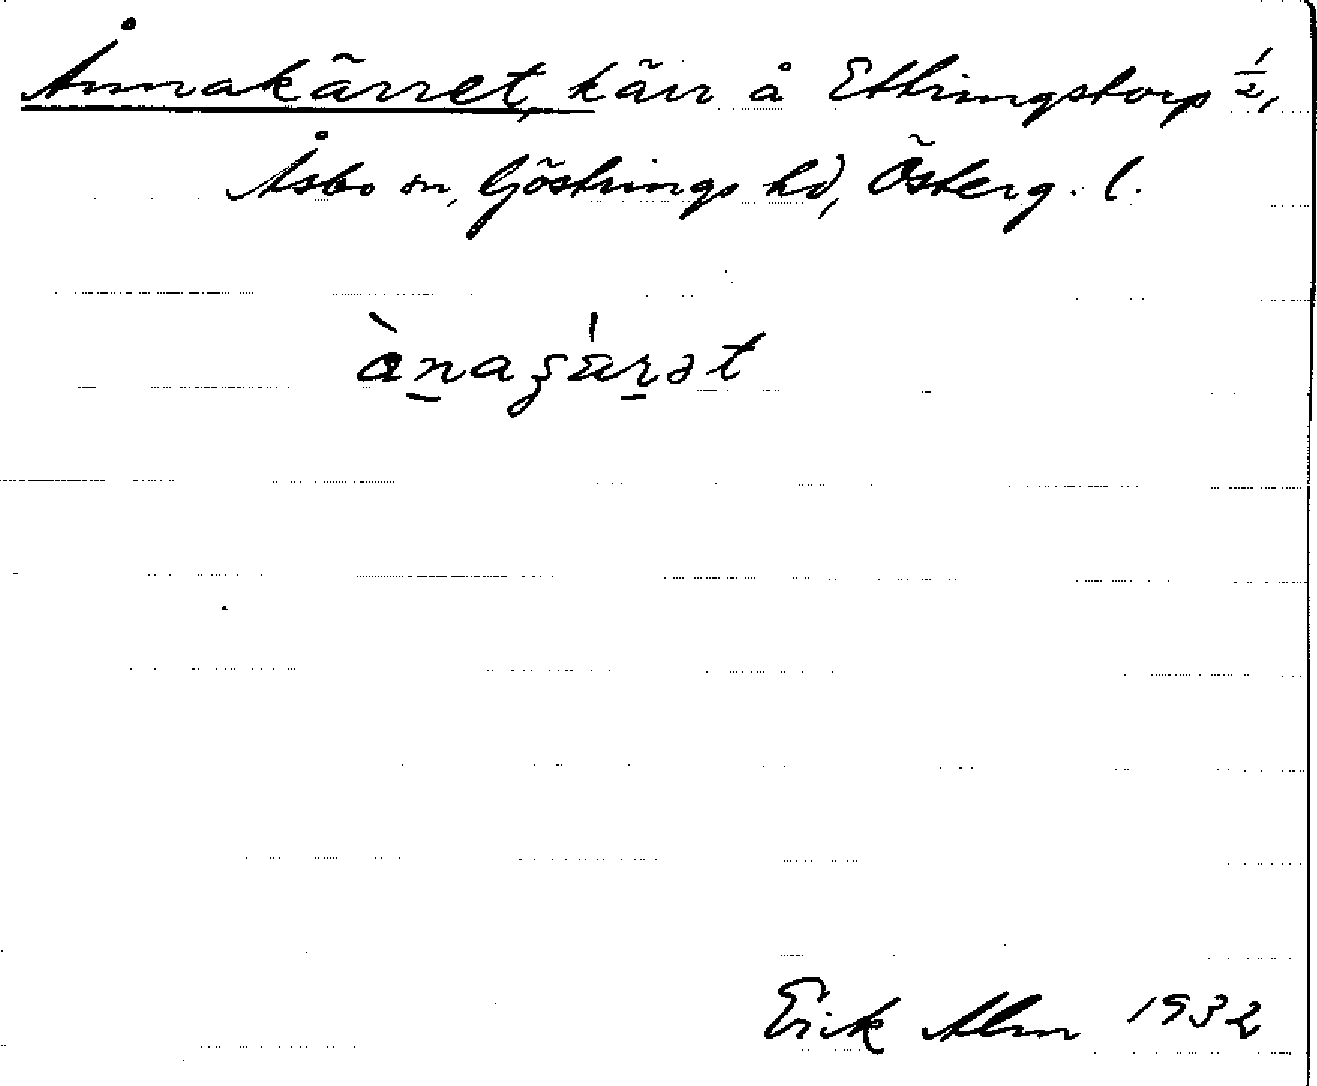 Ånnakärret, kärr å Ettringstorp 1/2,
Åsbo sn, Göstrings hd, Österg. l.
Erik Alm 1932